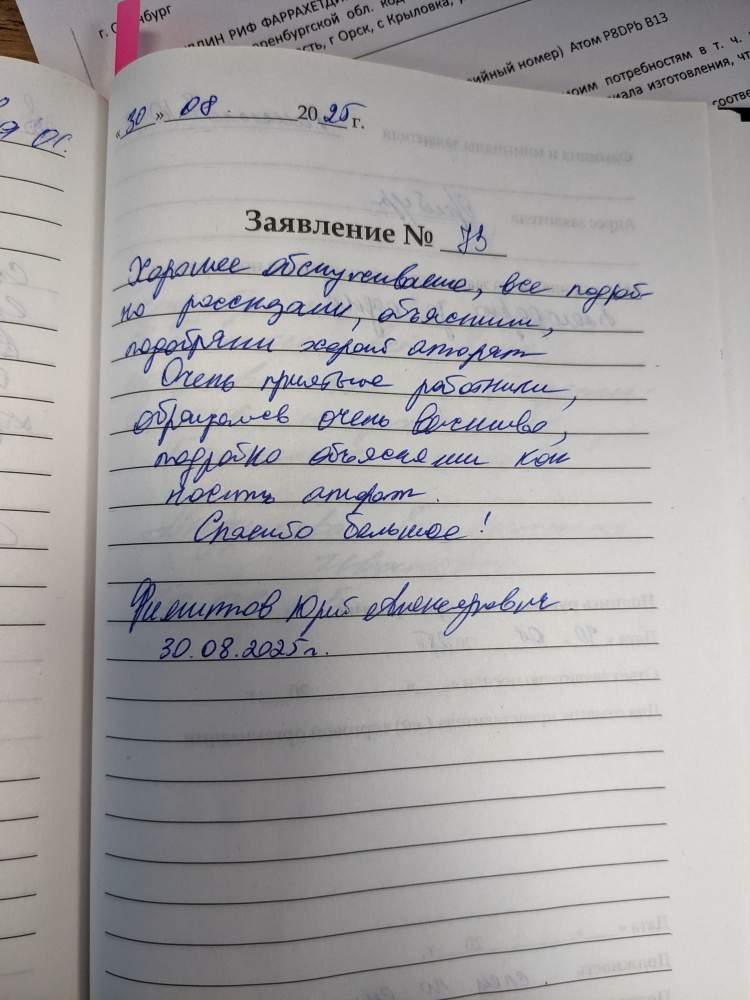 г. Оренбург
РИФ ФАРРАХЕТДИ
Оренбургской обл. код
г Орск, с Крыловка,
номер) Атом P8DPb B13
моим потребностям в т. ч.
изготовления, чт
«30» 08. 2025 г.
Заявление № 73
Хорошее обслуживание, все подроб-
но рассказали, объяснили,
подобрали хороий аппарат
Очень приятные работники,
обращались очень вежливо,
подробно объясняли как
носить аппарат.
Спасибо большое!
Юрий Александрович
30.08.2025г.